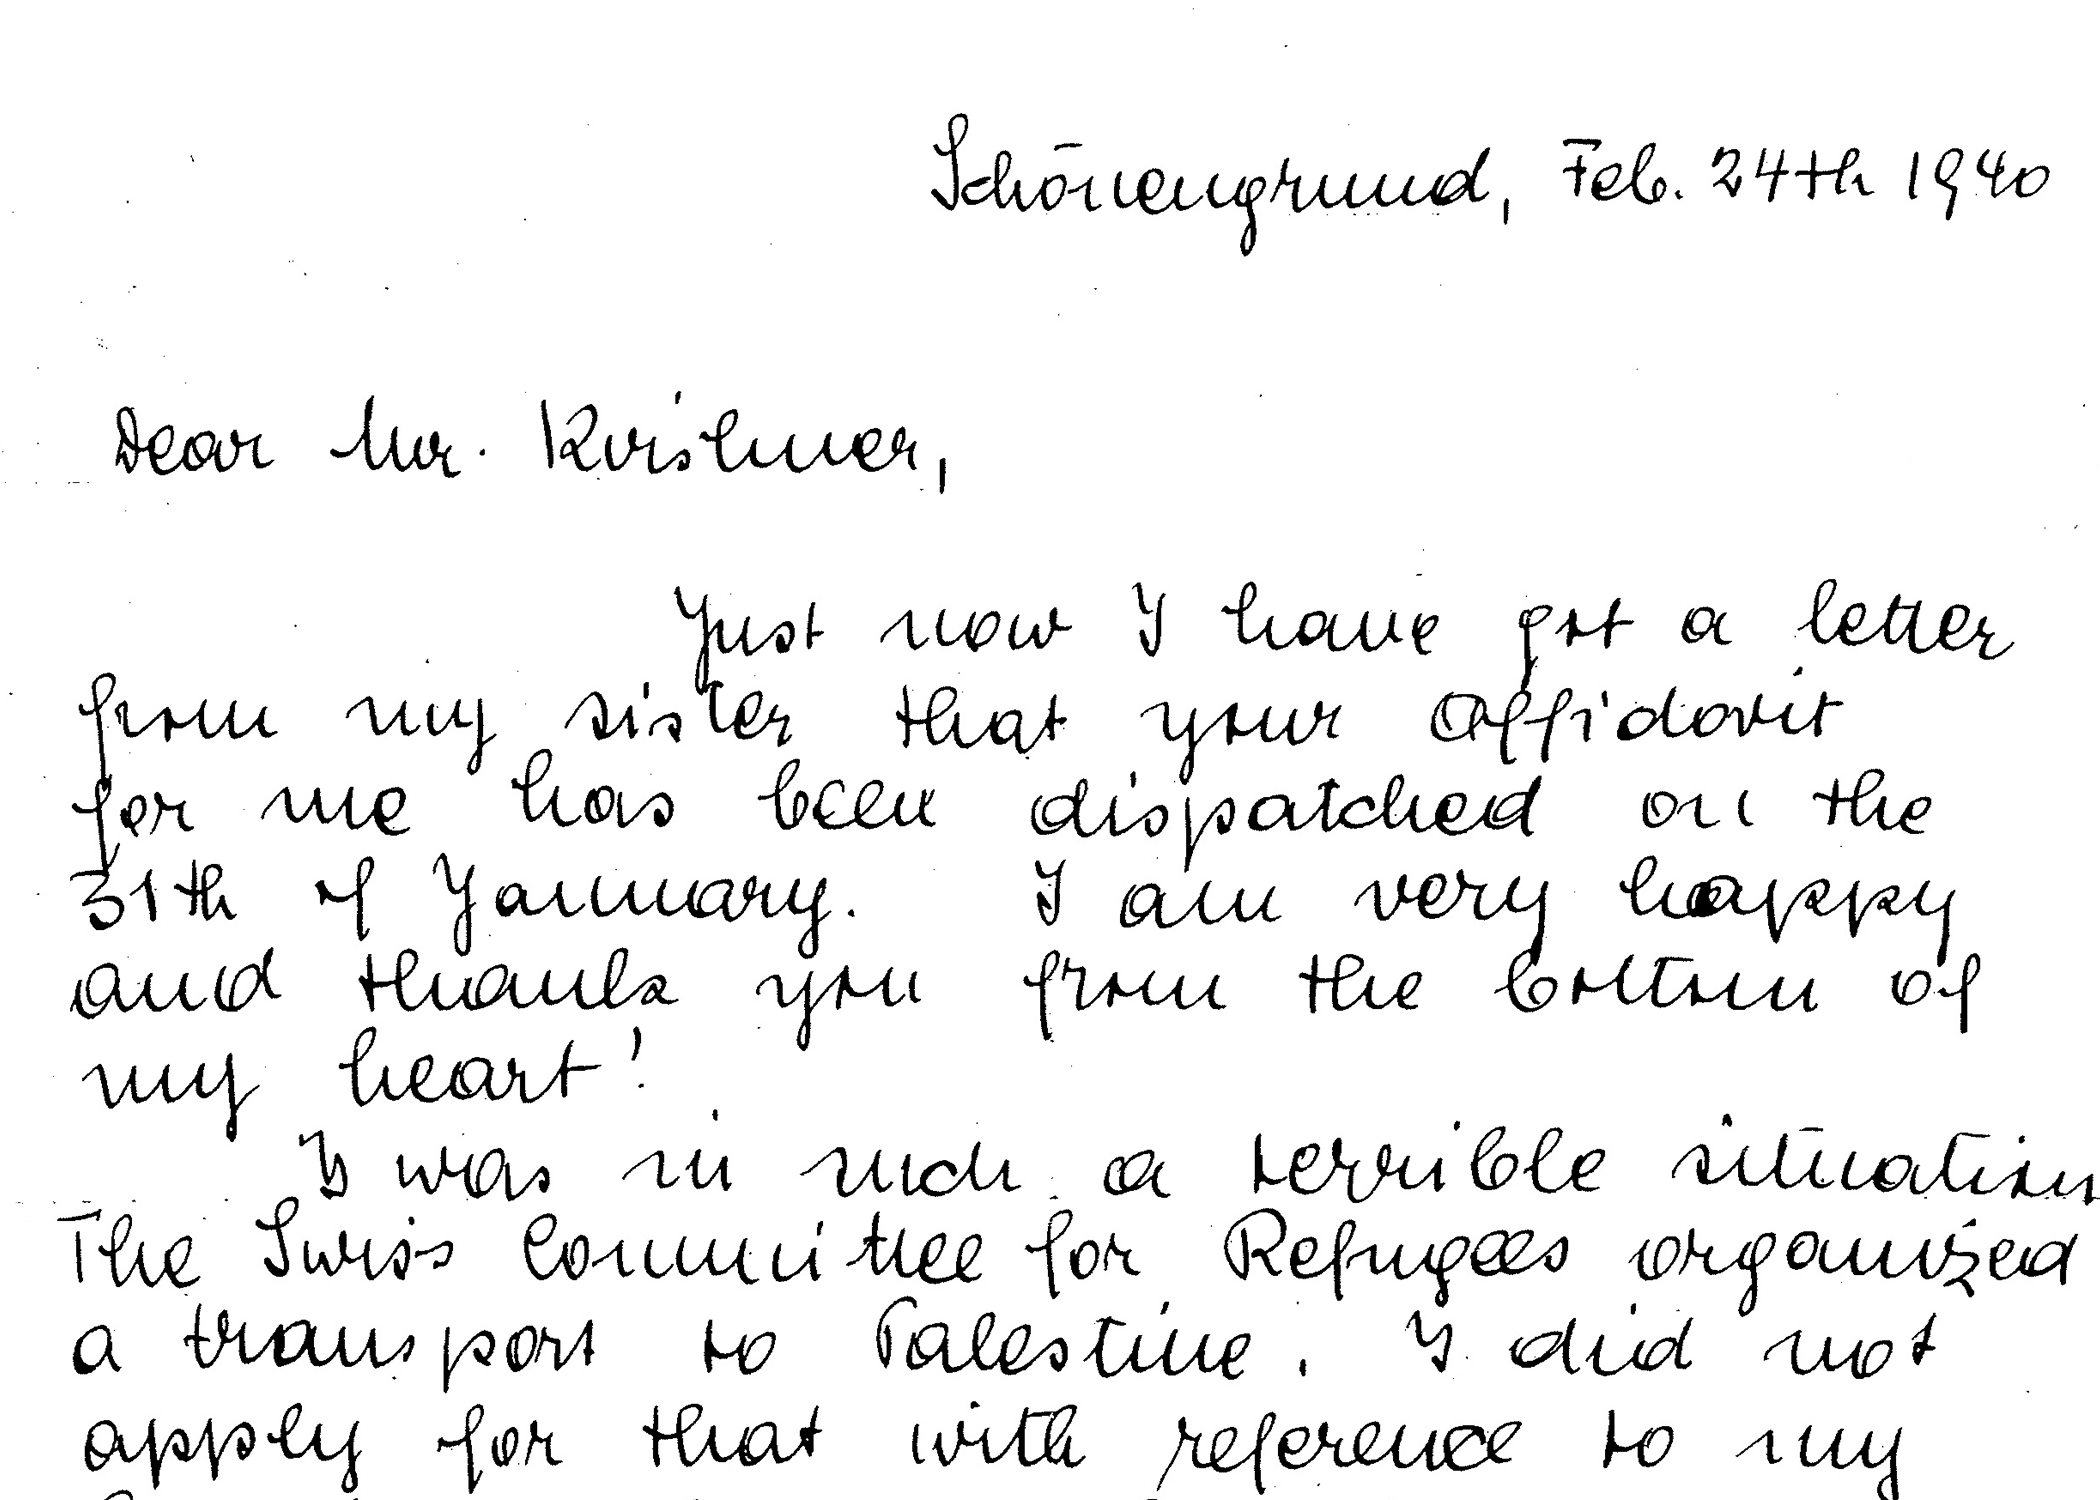 Schönengrund, Feb. 24th 1940
Dear Mr. Krishmer,
Just now I have got a letter
from my sister that your affidavit
for me has been dispatched on the
31th of January. I am very happy
and thanks you from the bottom of
my heart!
I was in such a terrible situation
The Swiss Committee for Refugees organized
a transport to Palestine. I did not
apply for that with reference to my